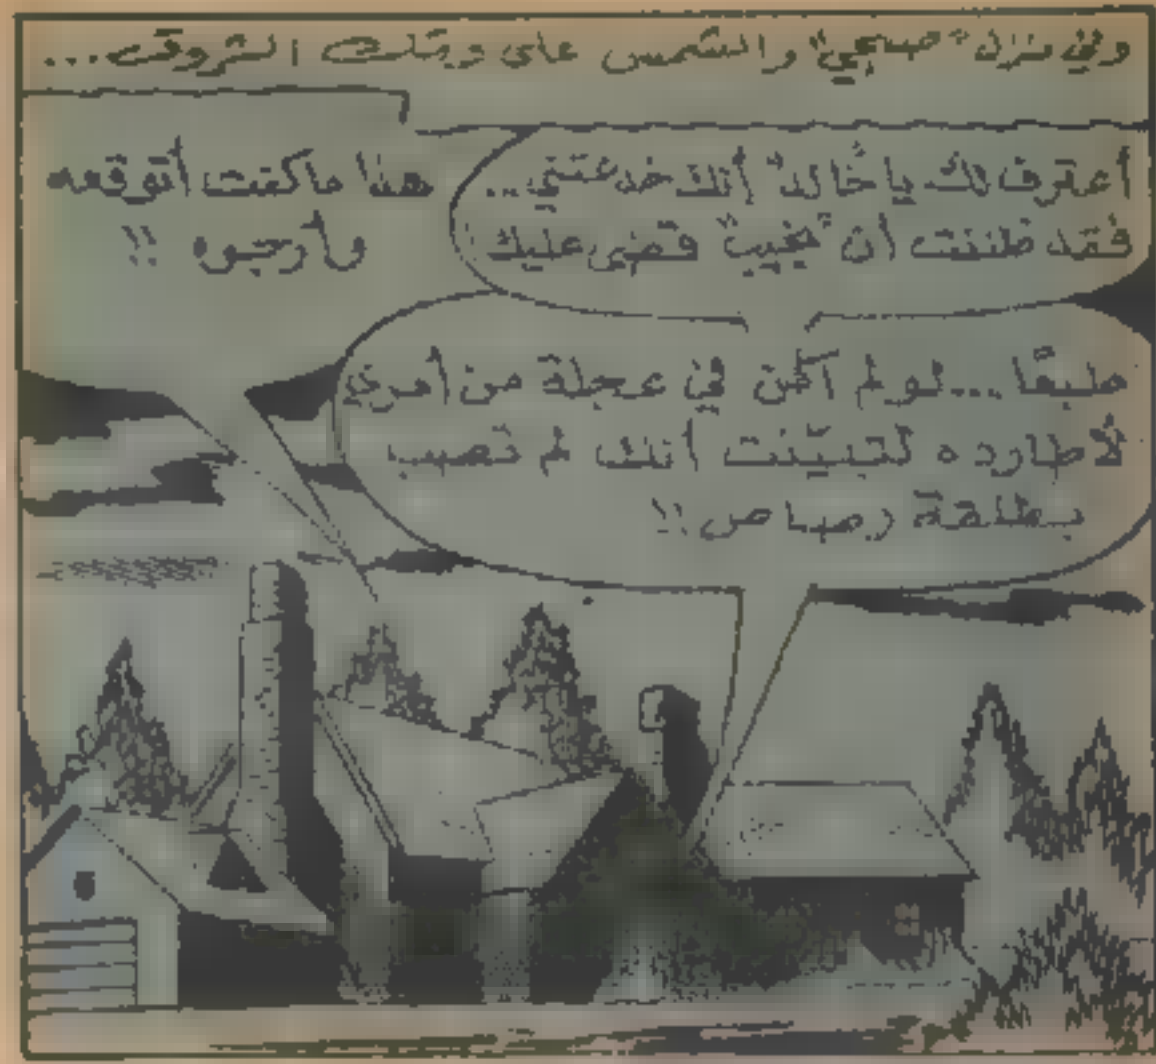 وفي منزل "صبحي" والشمس على وشك الشروق...
أعترف لك يا "خالد" أنك خدعتني...
فقد ظننت أن "نجيب" قضى عليك
هذا ما كنت أتوقعه
وأرجوه !!
طبعًا... لو لم أكن في عجلة من أمري
لأطارده لتبيّنت أنك لم تصب
بطلقة رصاص !!